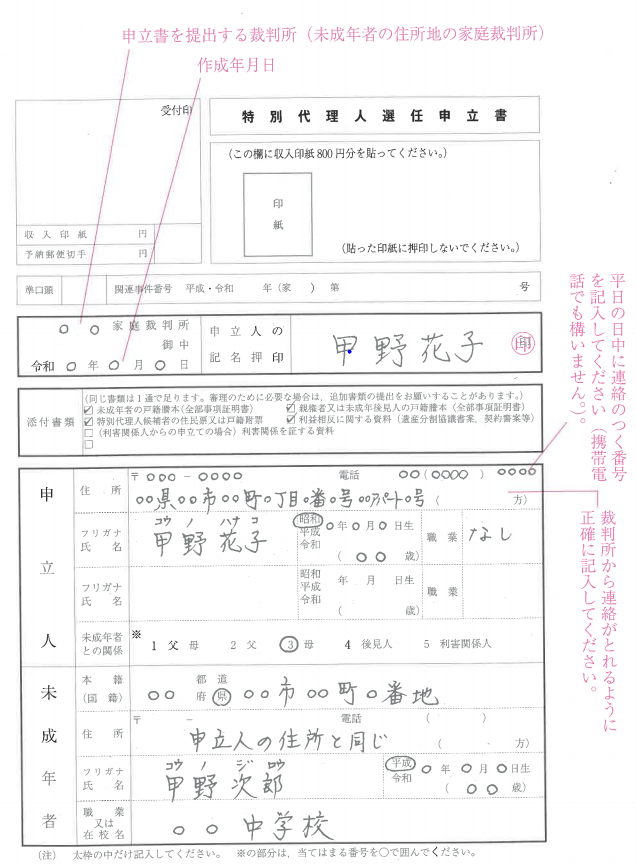 申立書を提出する裁判所（未成年者の住所地の家庭裁判所）
作成年月日
受付印
特別代理人選任申立書
（この欄に収入印紙800円分を貼ってください。）
印
紙
（貼った印紙に押印しないでください。）
収入印紙 円
予納郵便切手 円
準口頭 関連事件番号 平成・令和 年（家 ）第 号
○ ○ 家庭裁判所
御中
令和 ○ 年 ○ 月 ○ 日
申立人の
記名押印
甲野花子 印
平日の日中に連絡のつく番号
を記入してください（携帯電
話でも構いません。）。
添付書類
（同じ書類は1通で足ります。審理のために必要な場合は，追加書類の提出をお願いすることがあります。）
☑ 未成年者の戸籍謄本（全部事項証明書） ☑ 親権者又は未成年後見人の戸籍謄本（全部事項証明書）
☑ 特別代理人候補者の住民票又は戸籍附票 ☑ 利益相反に関する資料（遺産分割協議書案，契約書案等）
□ （利害関係人からの申立ての場合）利害関係を証する資料
□
申立人
住所
〒 ○○○ － ○○○○ 電話 ○○（○○○○ ）○○○○
○○県○○市○○町○丁目○番○号○○アパート○号（ 方）
裁判所から連絡がとれるように
正確に記入してください。
フリガナ
氏名
コウノ ハナコ
甲野花子
昭和
平成
令和
○年○月○日生
（ ○○ 歳）
職業 なし
フリガナ
氏名
昭和
平成
令和
年 月 日生
（ 歳）
職業
未成年者
との関係
※
1 父母 2 父 ③ 母 4 後見人 5 利害関係人
未成年者
本籍
（国籍）
都 道
○○ 府 県 ○○市○○町○番地
住所
〒 － 電話 （ ）
申立人の住所と同じ （ 方）
フリガナ
氏名
コウノ ジロウ
甲野次郎
平成
令和
○年○月○日生
（ ○○ 歳）
職業
又は
在校名
○○中学校
（注） 太枠の中だけ記入してください。 ※の部分は，当てはまる番号を○で囲んでください。